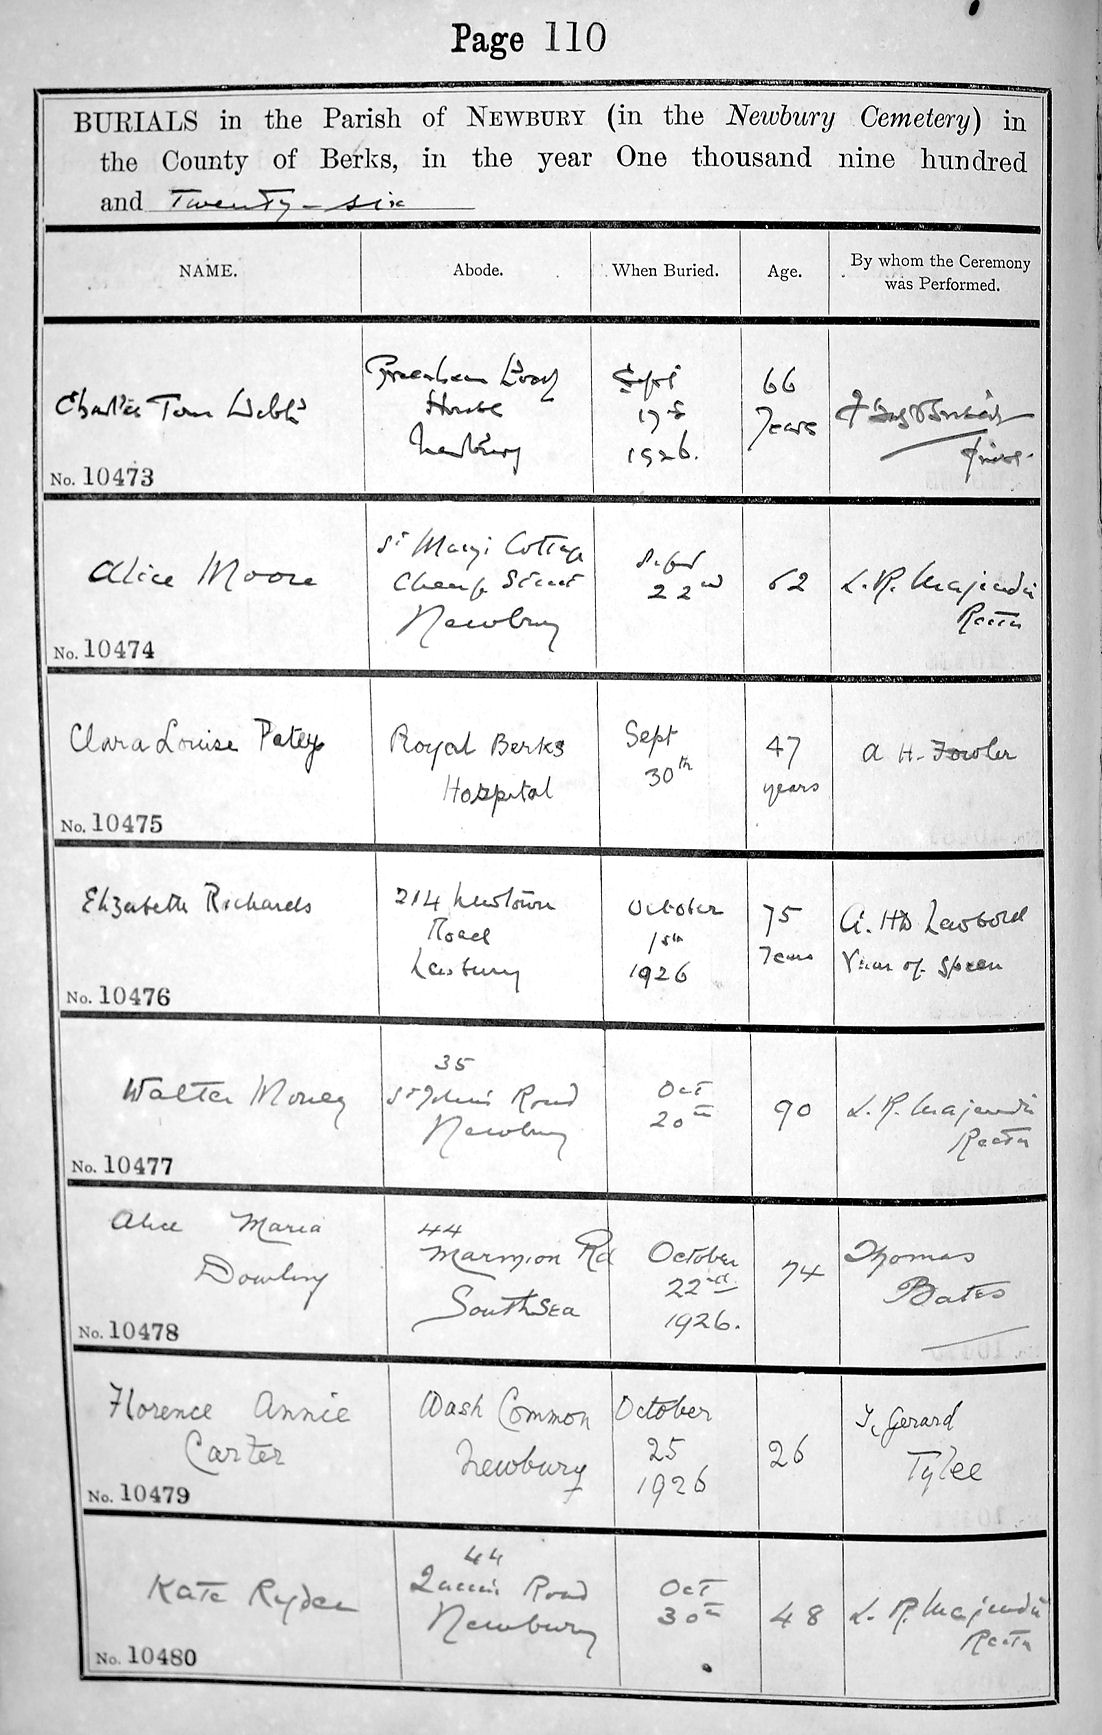 Page 110
BURIALS in the Parish of NEWBURY (in the Newbury Cemetery) in
the County of Berks, in the year One thousand nine hundred
and Twenty-six
NAME.
Abode.
When Buried.
Age.
By whom the Ceremony
was Performed.
Charles Tom Webb
No. 10473
Greenham Lodge
House
Newbury
Sept
1926.
66
Years
Alice Moore
No. 10474
St Mary's Cottage
Cheap Street
Newbury
Sept
22nd
62
L. R. Majendie
Rector
Clara Louise Patey
No. 10475
Royal Berks
Hospital
Sept
30th
47
years
A H. Fowler
Elizabeth Richards
No. 10476
214 Newtown
Road
Newbury
October
15th
1926
75
Years
Vicar of Speen
Walter Money
No. 10477
35
St John's Road
Newbury
Oct
20th
90
L. R. Majendie
Rector
Alice Maria
Dowling
No. 10478
44
Marmion Rd
Southsea
October
22nd
1926.
74
Thomas
Bates
Florence Annie
Carter
No. 10479
Wash Common
Newbury
October
25
1926
26
T. Gerard
Tylee
Kate Ryder
No. 10480
44
Queen's Road
Newbury
Oct
30th
48
L. R. Majendie
Rector